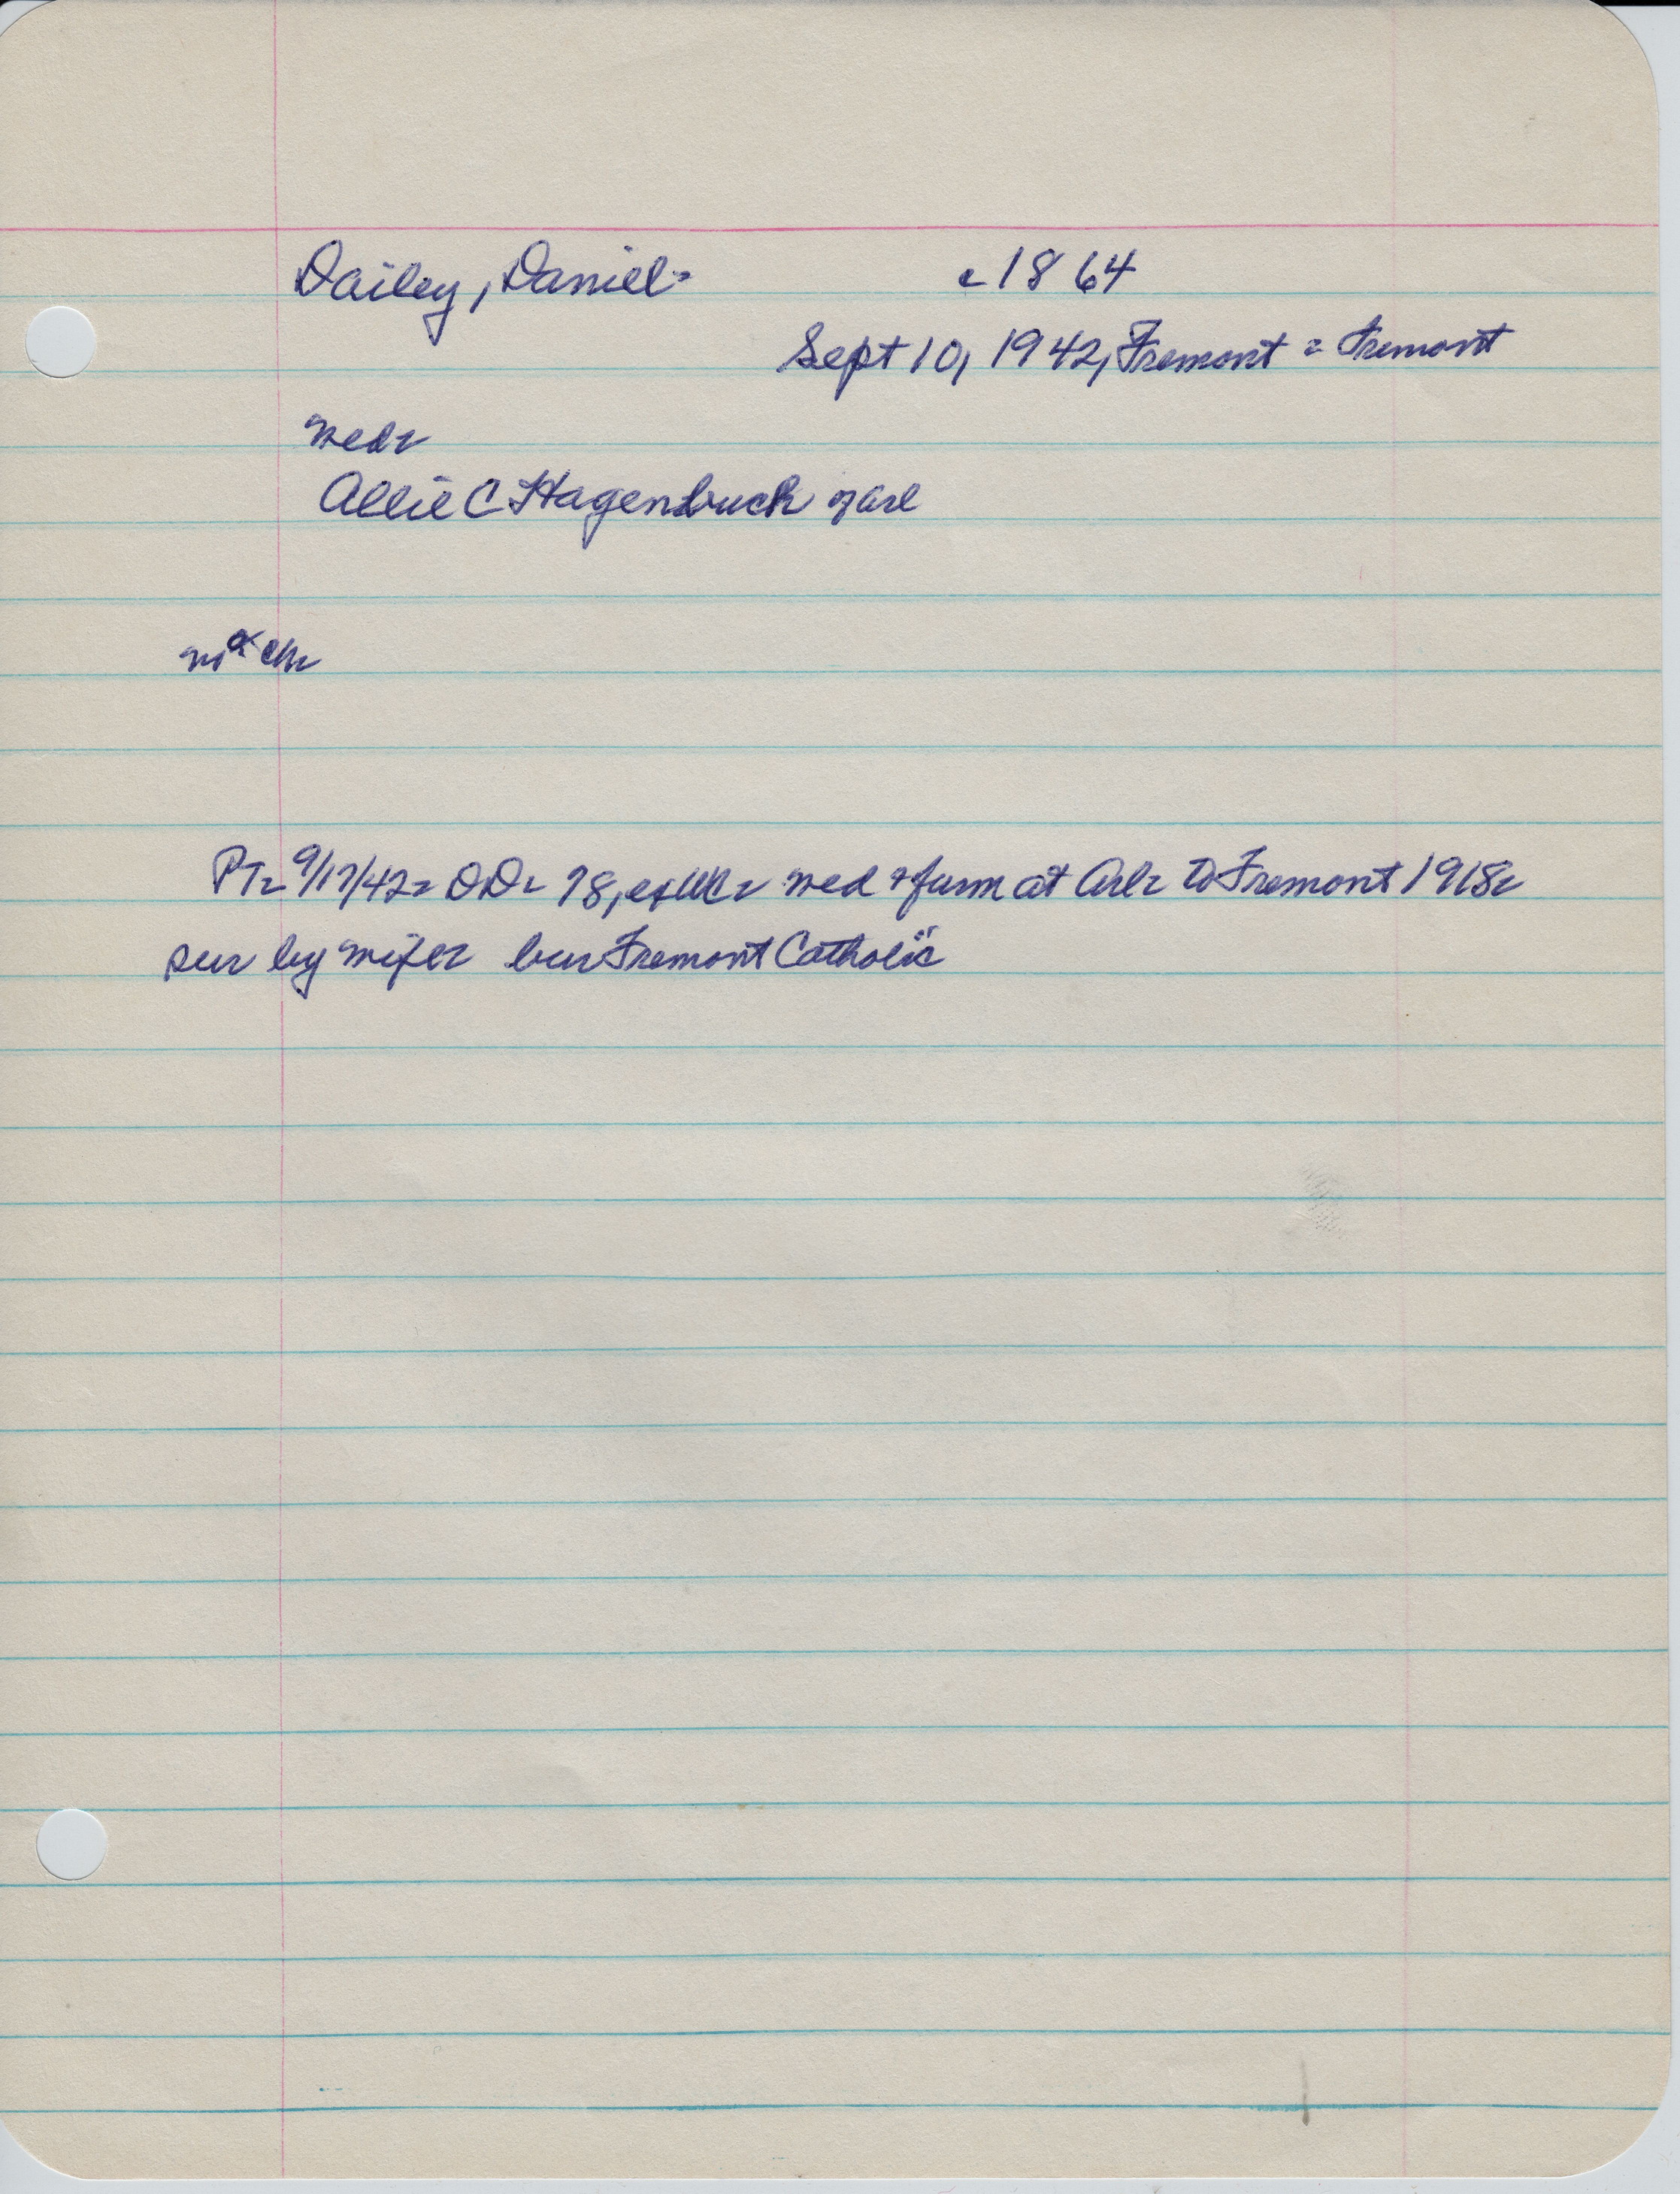 Dailey, Daniel- c1864
Sept 10, 1942, Fremont = Fremont
wed=
Allie C Hagenbuch of Arl
no ch=
PT= 9/17/42= DD= 78, = wed & farm at Arl= to Fremont 1918=
sur by wife= bur Fremont Catholic